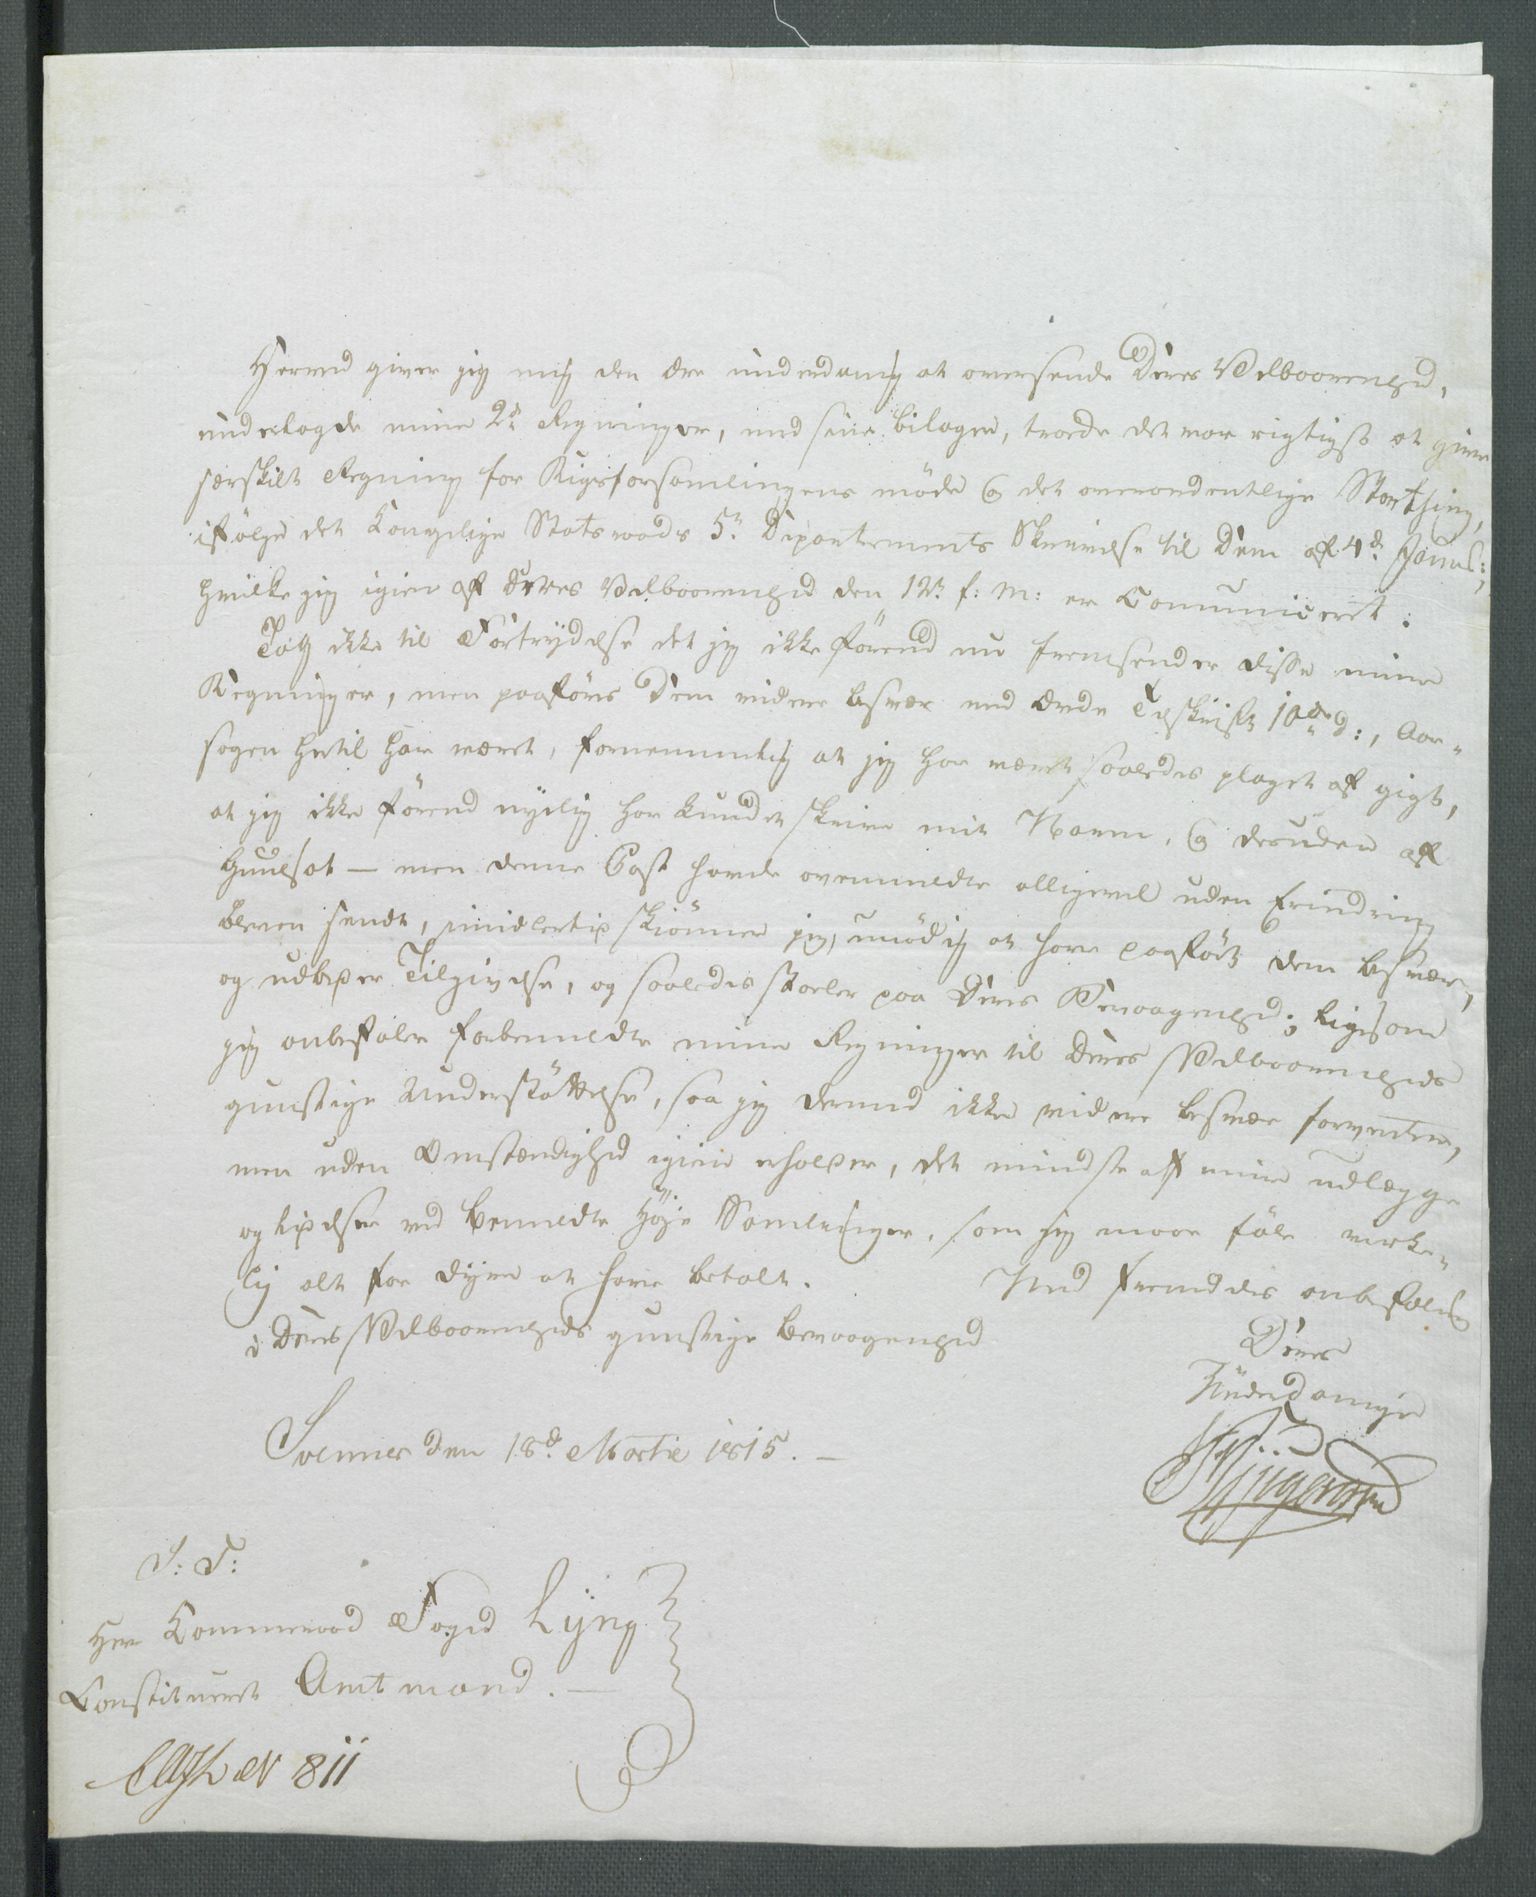 Herved giver jeg mig den ære underdanig at oversende Deres Velbaarenhed,
underlagde mine 2de Regninger, med sine bilager, troede det var rigtigst at give
særskilt Regning for Rigsforsamlingens møde og det overordentlige Storthing,
ifølge det Kongelige Statsraads 5te Departements Skrivelse til Dem af 4de Janua:;
hvilke jeg igien af Deres Velbaarenhed den 12te f: M: er Communiceret:
Tag ikke til Fortrydelse det jeg ikke førend nu fremsender disse mine
Regninger, men paaføres Dem videre besvær med Ærede Tilskrift 10de d:, Aar-
sagen hertil har været, fornemmelig at jeg har været saaledes plaget af gigt,
at jeg ikke førend nylig har kundet skrive mit Navn, og desuden af
Guulsot — men denne Post havde ovenmeldte alligevel uden Erindring
bleven sendt, imidlertid skiønner jeg, unødig at have paaført dem besvær,
og udbeder Tilgivelse, og saaledes stoeler paa Deres Bevaagenhed; ligesom
jeg anbefaler forbemeldte mine Regninger til Deres Velbaarenheds
gunstige Understøttelse, saa jeg derved ikke videre besvær forventer,
men uden Omstændighed igien erholder, det mindste af mine udlægge
og lidelser ved bemeldte Høje Samlinger, som jeg maae føle virke-
lig alt for dyre at have betalt. Med fremdeles anbefaling
i Deres Velbaarenheds gunstige bevaagenhed
Deres
Underdanige
Svenner den 18de Martie 1815. —
S: T:
Herr Commerraad Fogd Lyng
Constitueret Amtmand. —
N 811